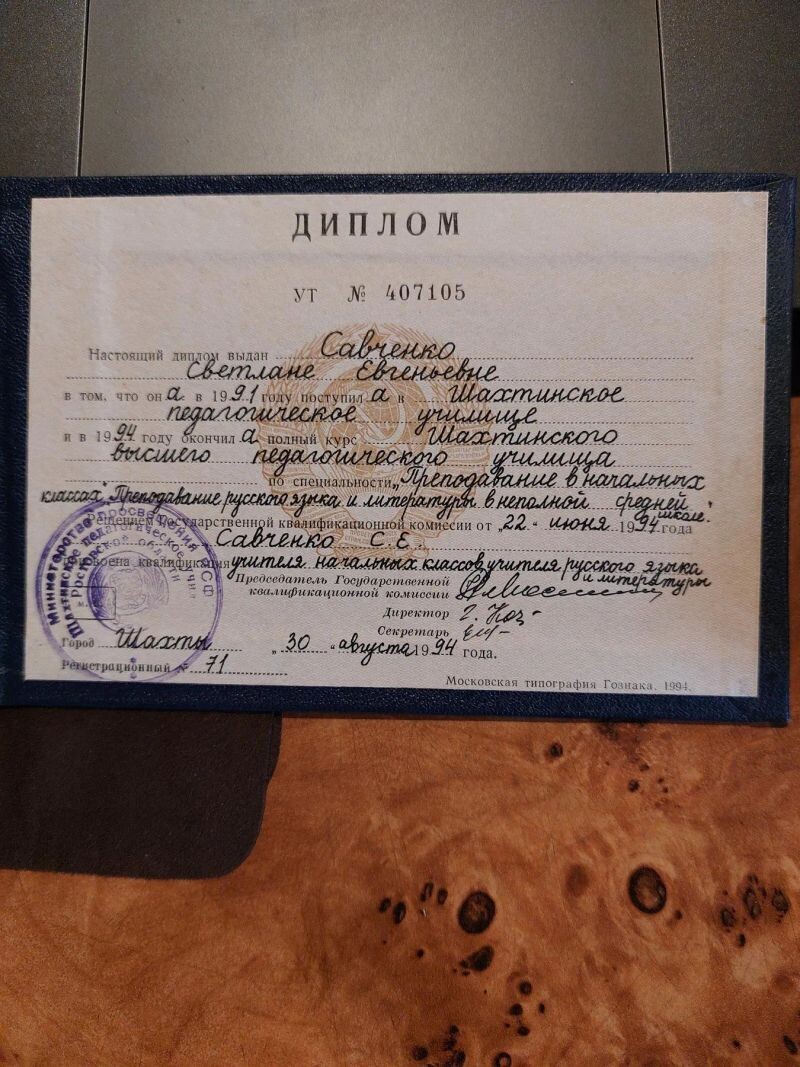 ДИПЛОМ
УТ № 407105
Настоящий диплом выдан Савченко
Светлане Евгеньевне
в том, что он а в 1991 году поступил а в Шахтинское
педагогическое училище
и в 1994 году окончил а полный курс Шахтинского
высшего педагогического училища
по специальности „Преподавание в начальных
классах" „Преподавание русского языка и литературы в неполной средней
школе."
Решением Государственной квалификационной комиссии от „22" июня 1994 года
Савченко С. Е.
присвоена квалификация учителя начальных классов учителя русского языка
и литературы
Председатель Государственной
квалификационной комиссии
Директор
Секретарь
Город Шахты „30" августа 1994 года.
Регистрационный № 71
Московская типография Гознака. 1994.
Министерство просвещения РСФСР
Шахтинское педагогическое училище
Ростовской области